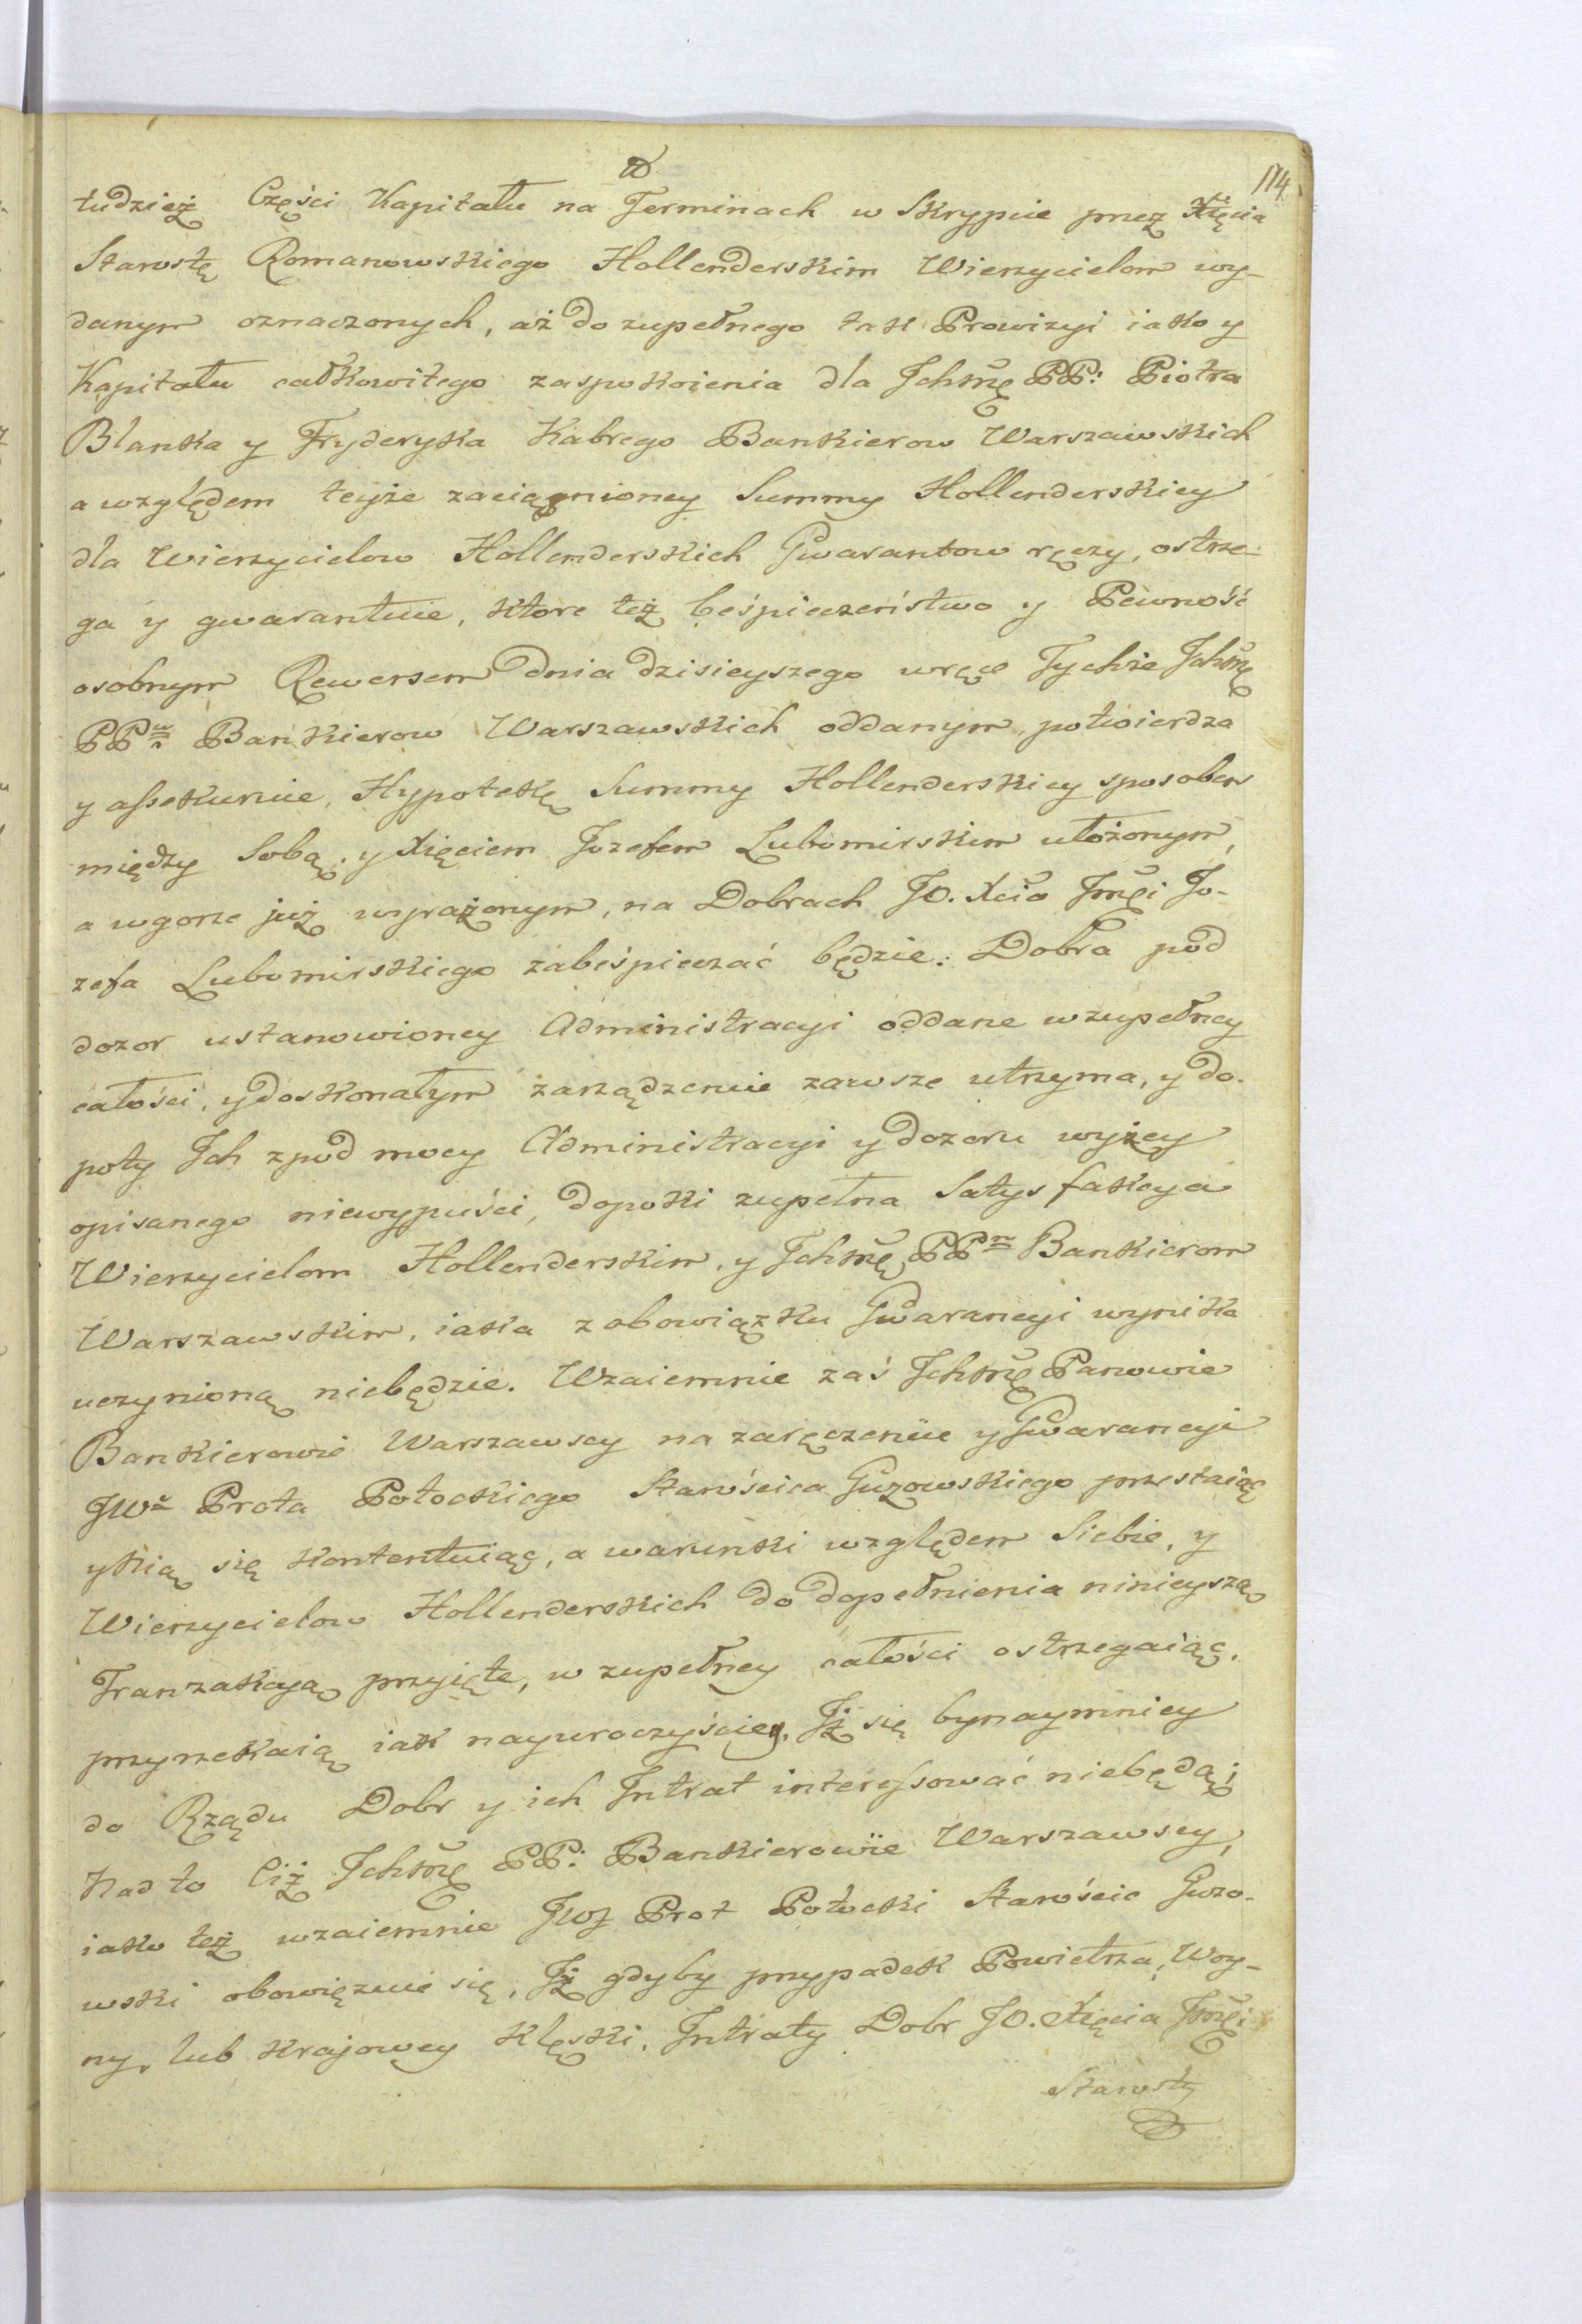 114
tudzież Części Kapitału na Terminach w Skrypcie przez Xięcia
Starostę Romanowskiego Hollenderskim Wierzycielom wy-
danym oznaczonych, aż do zupełnego tak Prowizyi iako y
Kapitału całkowitego zaspokoienia dla Ichmę PP: Piotra
Blanka y Fryderyka Kabrego Bankierow Warszawskich
a względem teyże zaciągnioney Summy Hollenderskiey
dla Wierzycielow Hollenderskich Gwarantow ręczy, ostrze-
ga y gwarantuie, ktore też beśpieczeństwo y Pewność
osobnym Rewersem dnia dzisieyszego wręce Tychże Ichmę
PPw Bankierow Warszawskich oddanym, potwierdza
y assekuruie, Hypotekę Summy Hollenderskiey sposobem
między Sobą, y Xięciem Jozefem Lubomirskim ułożonym,
a wgorze już wyrażonym, na Dobrach JO. Xcia Jmęi Jo-
zefa Lubomirskiego zabeśpieczać będzie: Dobra pod
dozor ustanowioney Administracyi oddane wzupełney
całości, y doskonałym zarządzeniu zawsze utrzyma, y do-
poty Ich zpod mocy Administracyi y dozoru wyżey
opisanego niewypuści, dopoki zupełna Satysfakcya
Wierzycielom Hollenderskim, y Ichmę PPm Bankierom
Warszawskim, iaka z obowiązku Gwarancyi wynika
uczynioną niebędzie. Wzaiemnie zaś Ichmę Panowie
Bankierowie Warszawscy na zaręczeniu y Gwarancyi
JWo Prota Potockiego Starościca Guzowskiego przestaiąc
y Nią się kontentuiąc, a warunki względem Siebie, y
Wierzycielow Hollenderskich do dopełnienia ninieyszą
Tranzakcyą przyięte, w zupełney całości ostrzegaiąc,
przyrzekaią iak nayuroczyściey, Iż się bynaymniey
do Rządu Dobr y ich Intrat interessować niebędą;
Nad to Ciż Ichmę PP: Bankierowie Warszawscy,
iako też wzaiemnie JWJ Prot Potocki Starościc Guzo-
wski obowięzuie się, Iż gdyby przypadek Powietrza, Woy-
ny, lub krajowey Klęski, Intraty Dobr JO. Xięcia Jmęi
Starosty